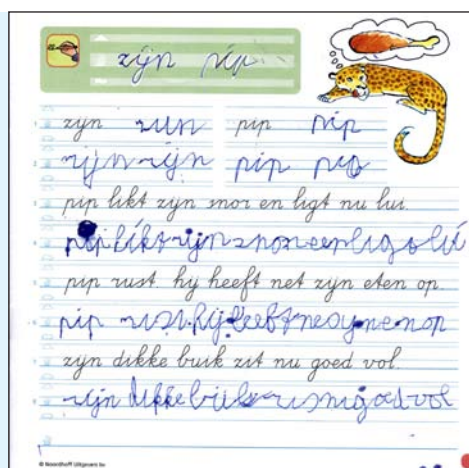 zijn pip
zijn zun pip pip
zijn zijn pip pip
pip likt zijn snor en ligt nu lui.
pip likt zijn snor en lig lui
pip rust. hij heeft net zijn eten op.
pip rust hij heeft ne op
zijn dikke buik zit nu goed vol.
zijn dikke buik goed vol
© Noordhoff Uitgevers bv